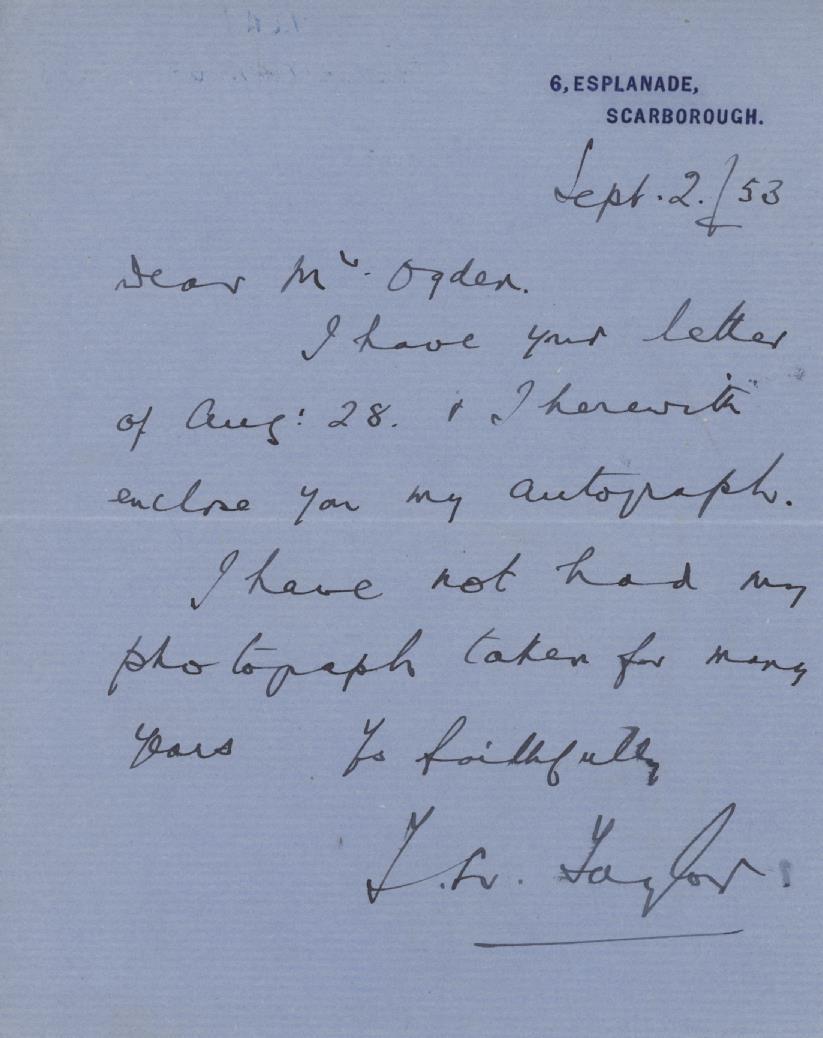 6, ESPLANADE,
SCARBOROUGH.
Sept. 2./53
Dear Mr. Ogden.
I have your letter
of Aug: 28. & I herewith
enclose you my autograph.
I have not had my
photograph taken for many
years Ys faithfully
T. L. Taylor.